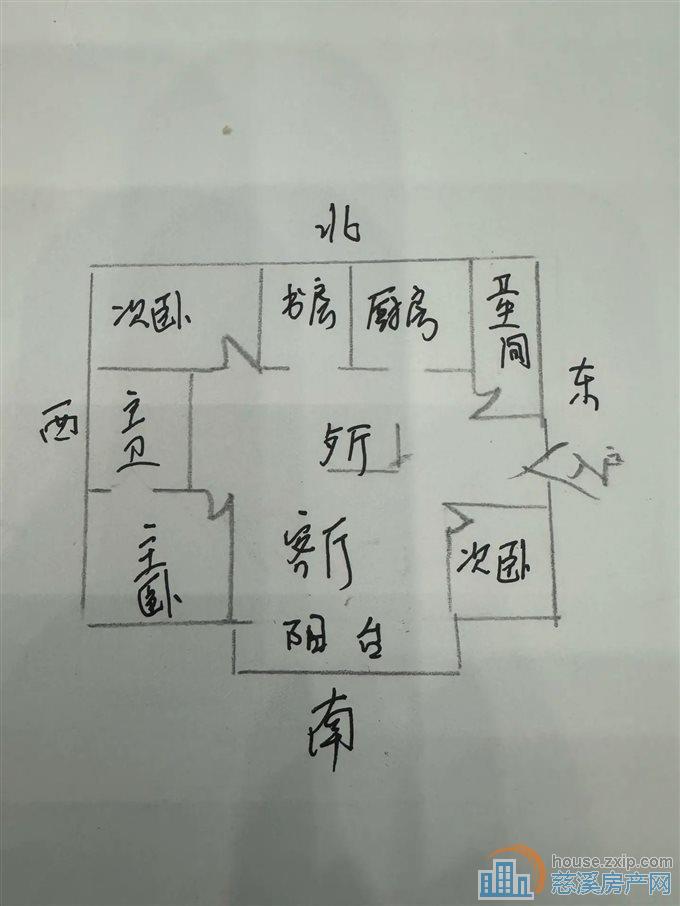 北
次卧
书房
厨房
卫生间
西
主卫
歺厅
东
入户
客厅
主卧
次卧
阳台
南
house.zxip.com
慈溪房产网